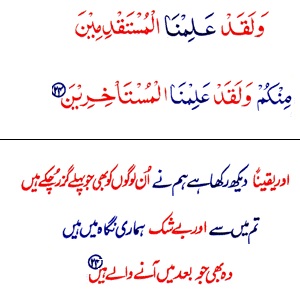 وَلَقَدْ عَلِمْنَا الْمُسْتَقْدِمِيْنَ
مِنْكُمْ وَلَقَدْ عَلِمْنَا الْمُسْتَاْخِرِيْنَ ﴿۲۴﴾
اور یقیناً دیکھ رکھا ہے ہم نے اُن لوگوں کو بھی جو پہلے گزر چُکے ہیں
تم میں سے اور بے شک ہماری نگاہ میں ہیں
وہ بھی جو بعد میں آنے والے ہیں ﴿۲۴﴾